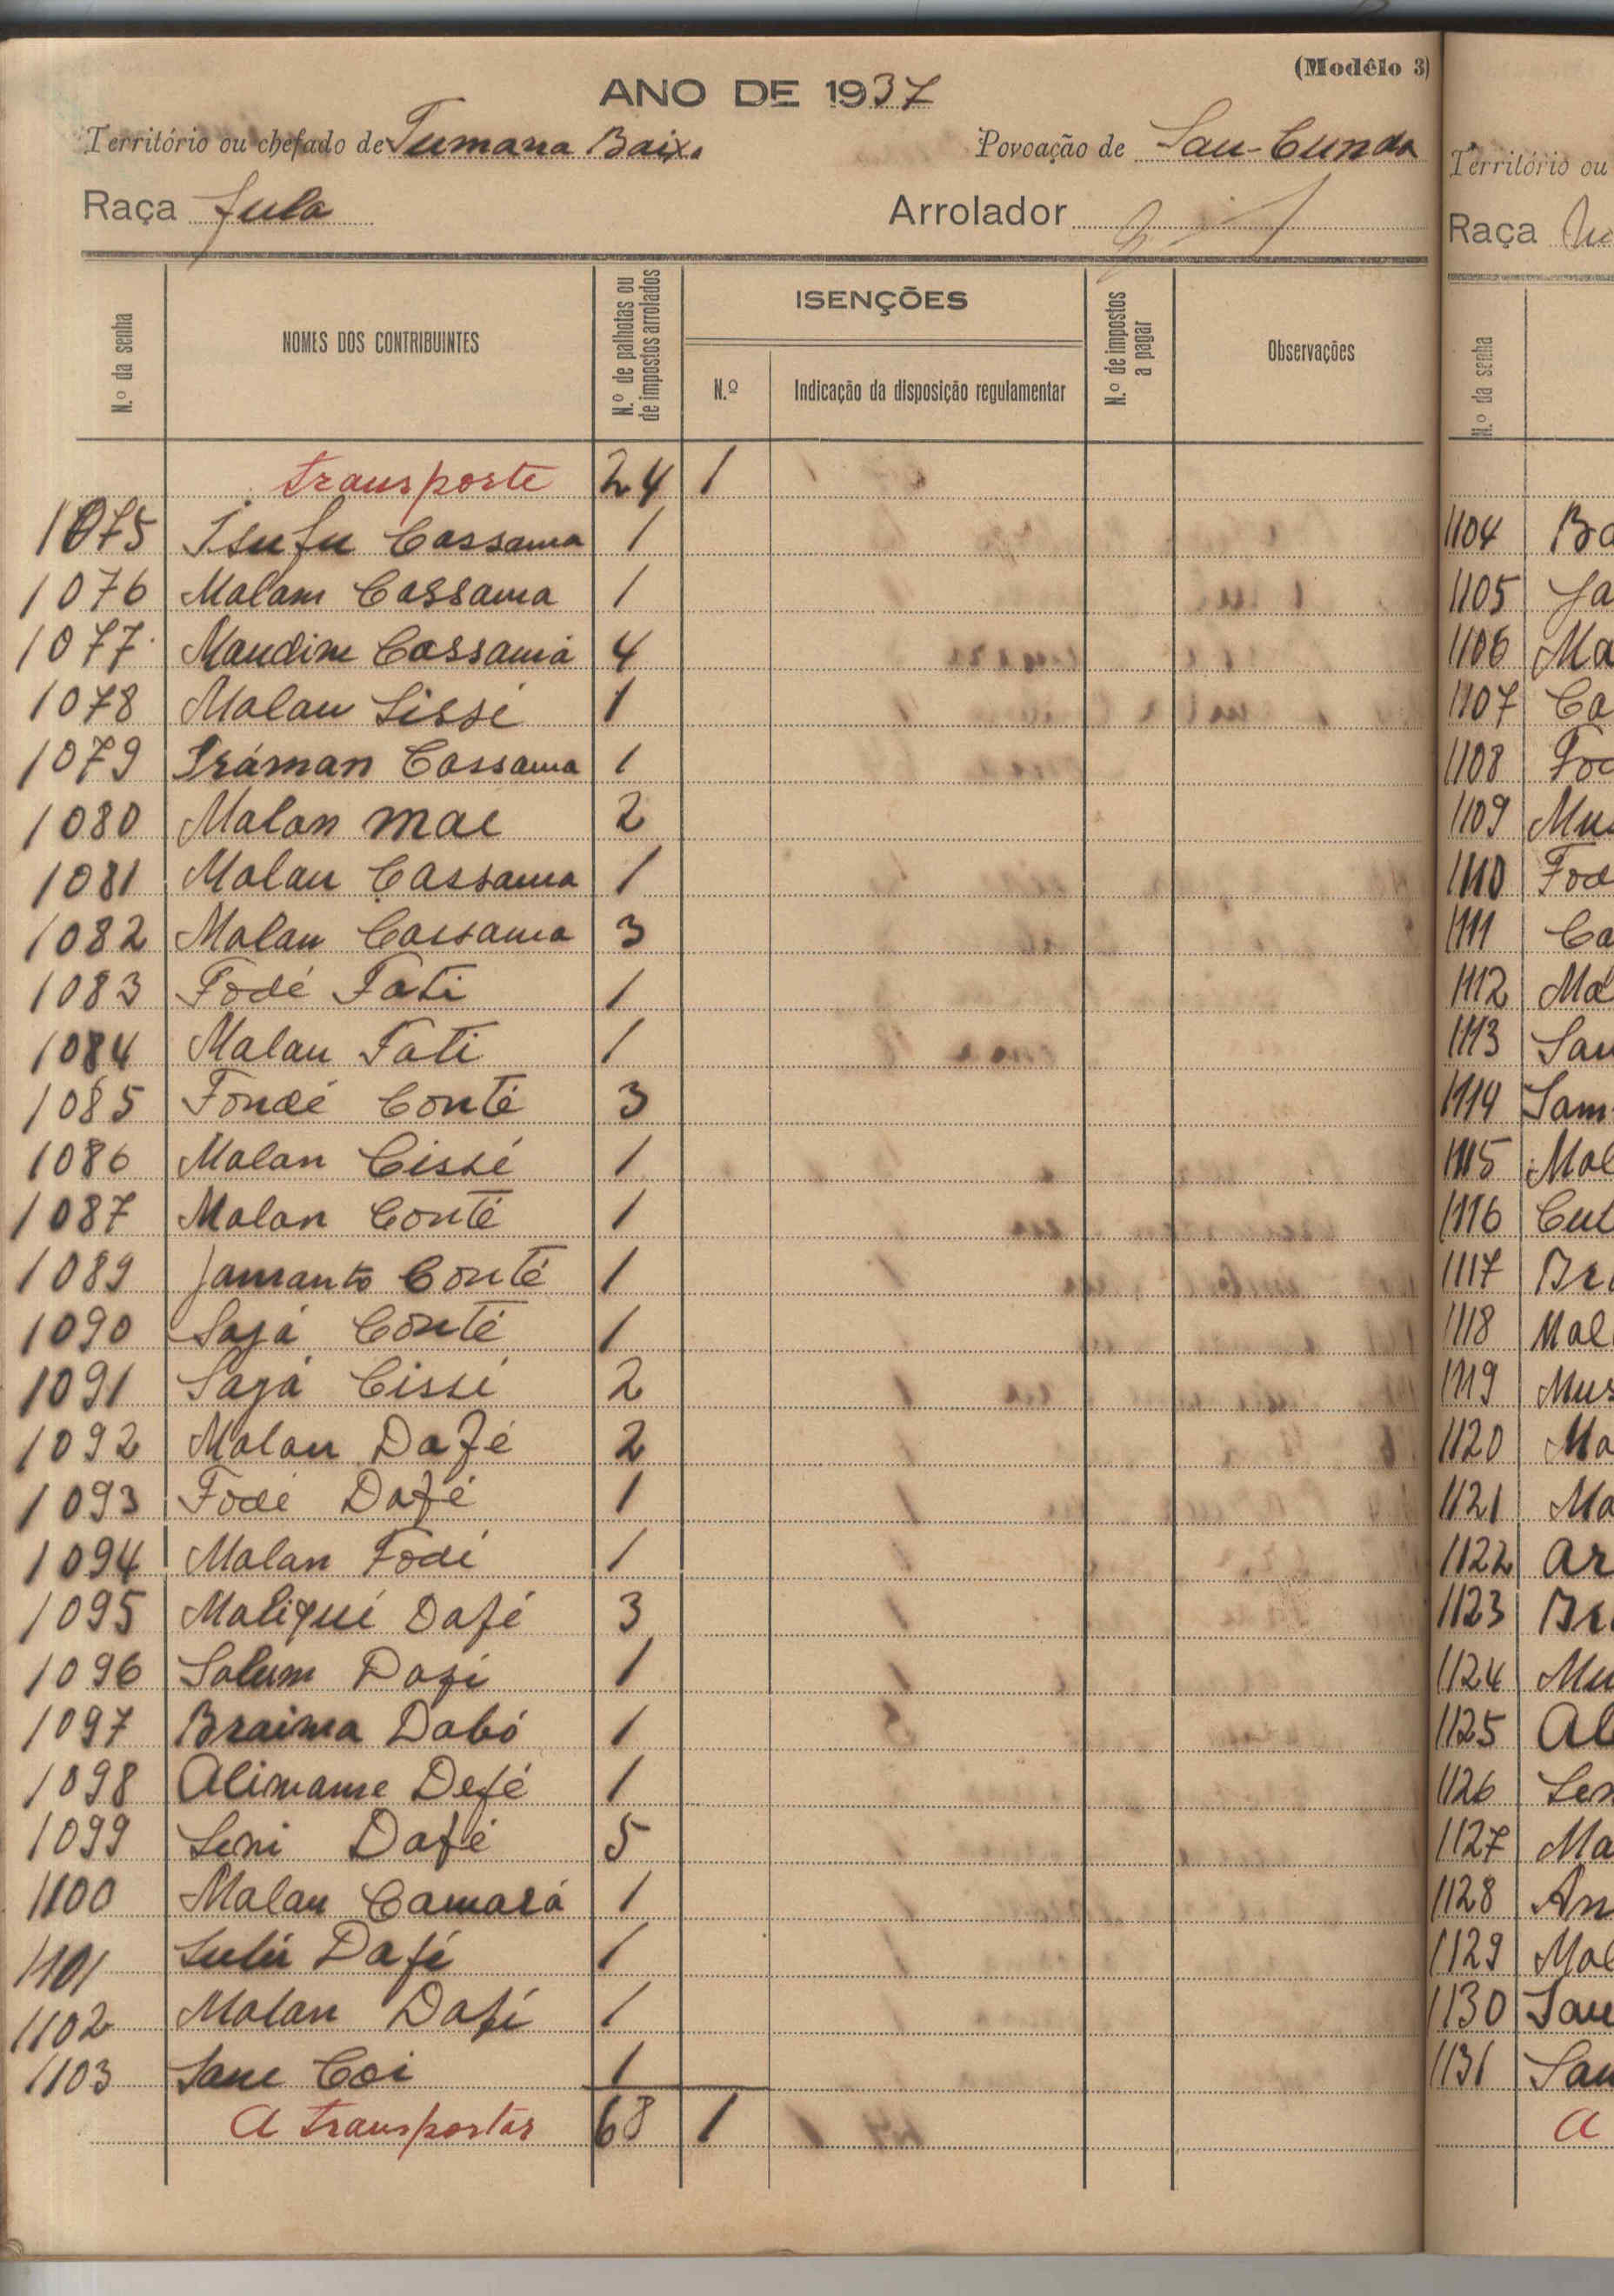 (Modêlo 3)
ANO DE 1937
Território ou chefado de Tumana Baixo
Povoação de Sau-Cunda
Raça fula
Arrolador
N.º da senha
NOMES DOS CONTRIBUINTES
N.º de palhotas ou de impostos arrolados
ISENÇÕES
N.º
Indicação da disposição regulamentar
N.º de impostos a pagar
Observações
transporte 24 1
1075 Isufu Cassama 1
1076 Malam Cassama 1
1077 Maudine Cassamá 4
1078 Malau Sissé 1
1079 Iráman Cassama 1
1080 Malan mae 2
1081 Malau Cassama 1
1082 Malau Cassama 3
1083 Fodé Fati 1
1084 Malau Fati 1
1085 Fondé Conté 3
1086 Malan Cissé 1
1087 Malan Conté 1
1089 Jamanto Conté 1
1090 Sajá Conté 1
1091 Sajá Cissé 2
1092 Malau Dafé 2
1093 Fodé Dafé 1
1094 Malan Fodé 1
1095 Maliqui Dafé 3
1096 Salum Dafé 1
1097 Braima Dabó 1
1098 Alimame Defé 1
1099 Seni Dafé 5
1100 Malau Camará 1
1101 Dafé 1
1102 Malan Dafé 1
1103 Sane Coi 1
A transportar 68 1
Território ou
Raça
N.º da senha
1104 Ba
1105 Ja
1106 Ma
1107 Ca
1108 Fod
1109 Mu
1110 Fod
1111 Ca
1112 Ma
1113 Sau
1114 Sam
1115 Mal
1116 Cul
1117 Br
1118 Mal
1119 Mus
1120 Ma
1121 Ma
1122 Ar
1123 Br
1124 Mu
1125 Al
1126 Sen
1127 Ma
1128 An
1129 Mal
1130 Sau
1131 Sau
A